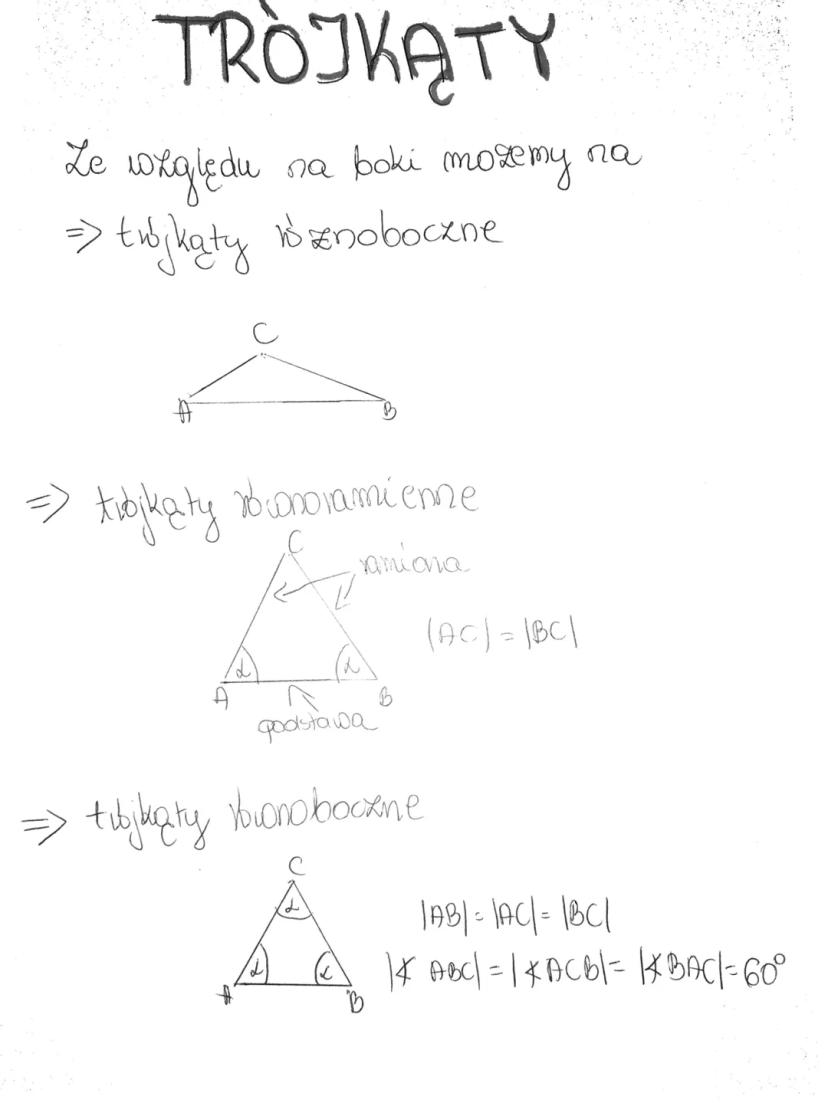 TRÓJKĄTY
Ze względu na boki możemy na
=> trójkąty różnoboczne
C
A
B
=> trójkąty równoramienne
C
ramiona
|AC| = |BC|
α
α
A
B
podstawa
=> trójkąty równoboczne
C
α
|AB| = |AC| = |BC|
α
α
|∢ ABC| = |∢ACB| = |∢BAC| = 60°
A
B